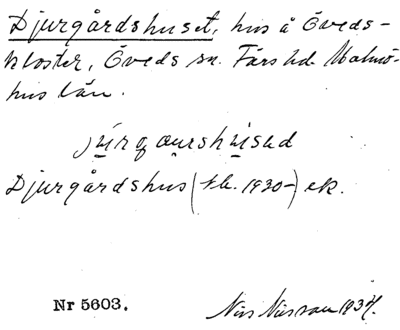 Djurgårdshuset, hus å Öveds-
kloster, Öveds sn. Färs hd. Malmö-
hus län.
Djurgårdshus (fb. 1930-) ek.
Nr 5603.
Nils Nilsson 1934.